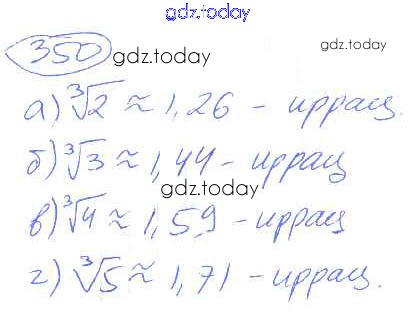 gdz.today
350 gdz.today gdz.today
а) ∛2 ≈ 1,26 - иррац.
б) ∛3 ≈ 1,44 - иррац
gdz.today
в) ∛4 ≈ 1,59 - иррац
г) ∛5 ≈ 1,71 - иррац.